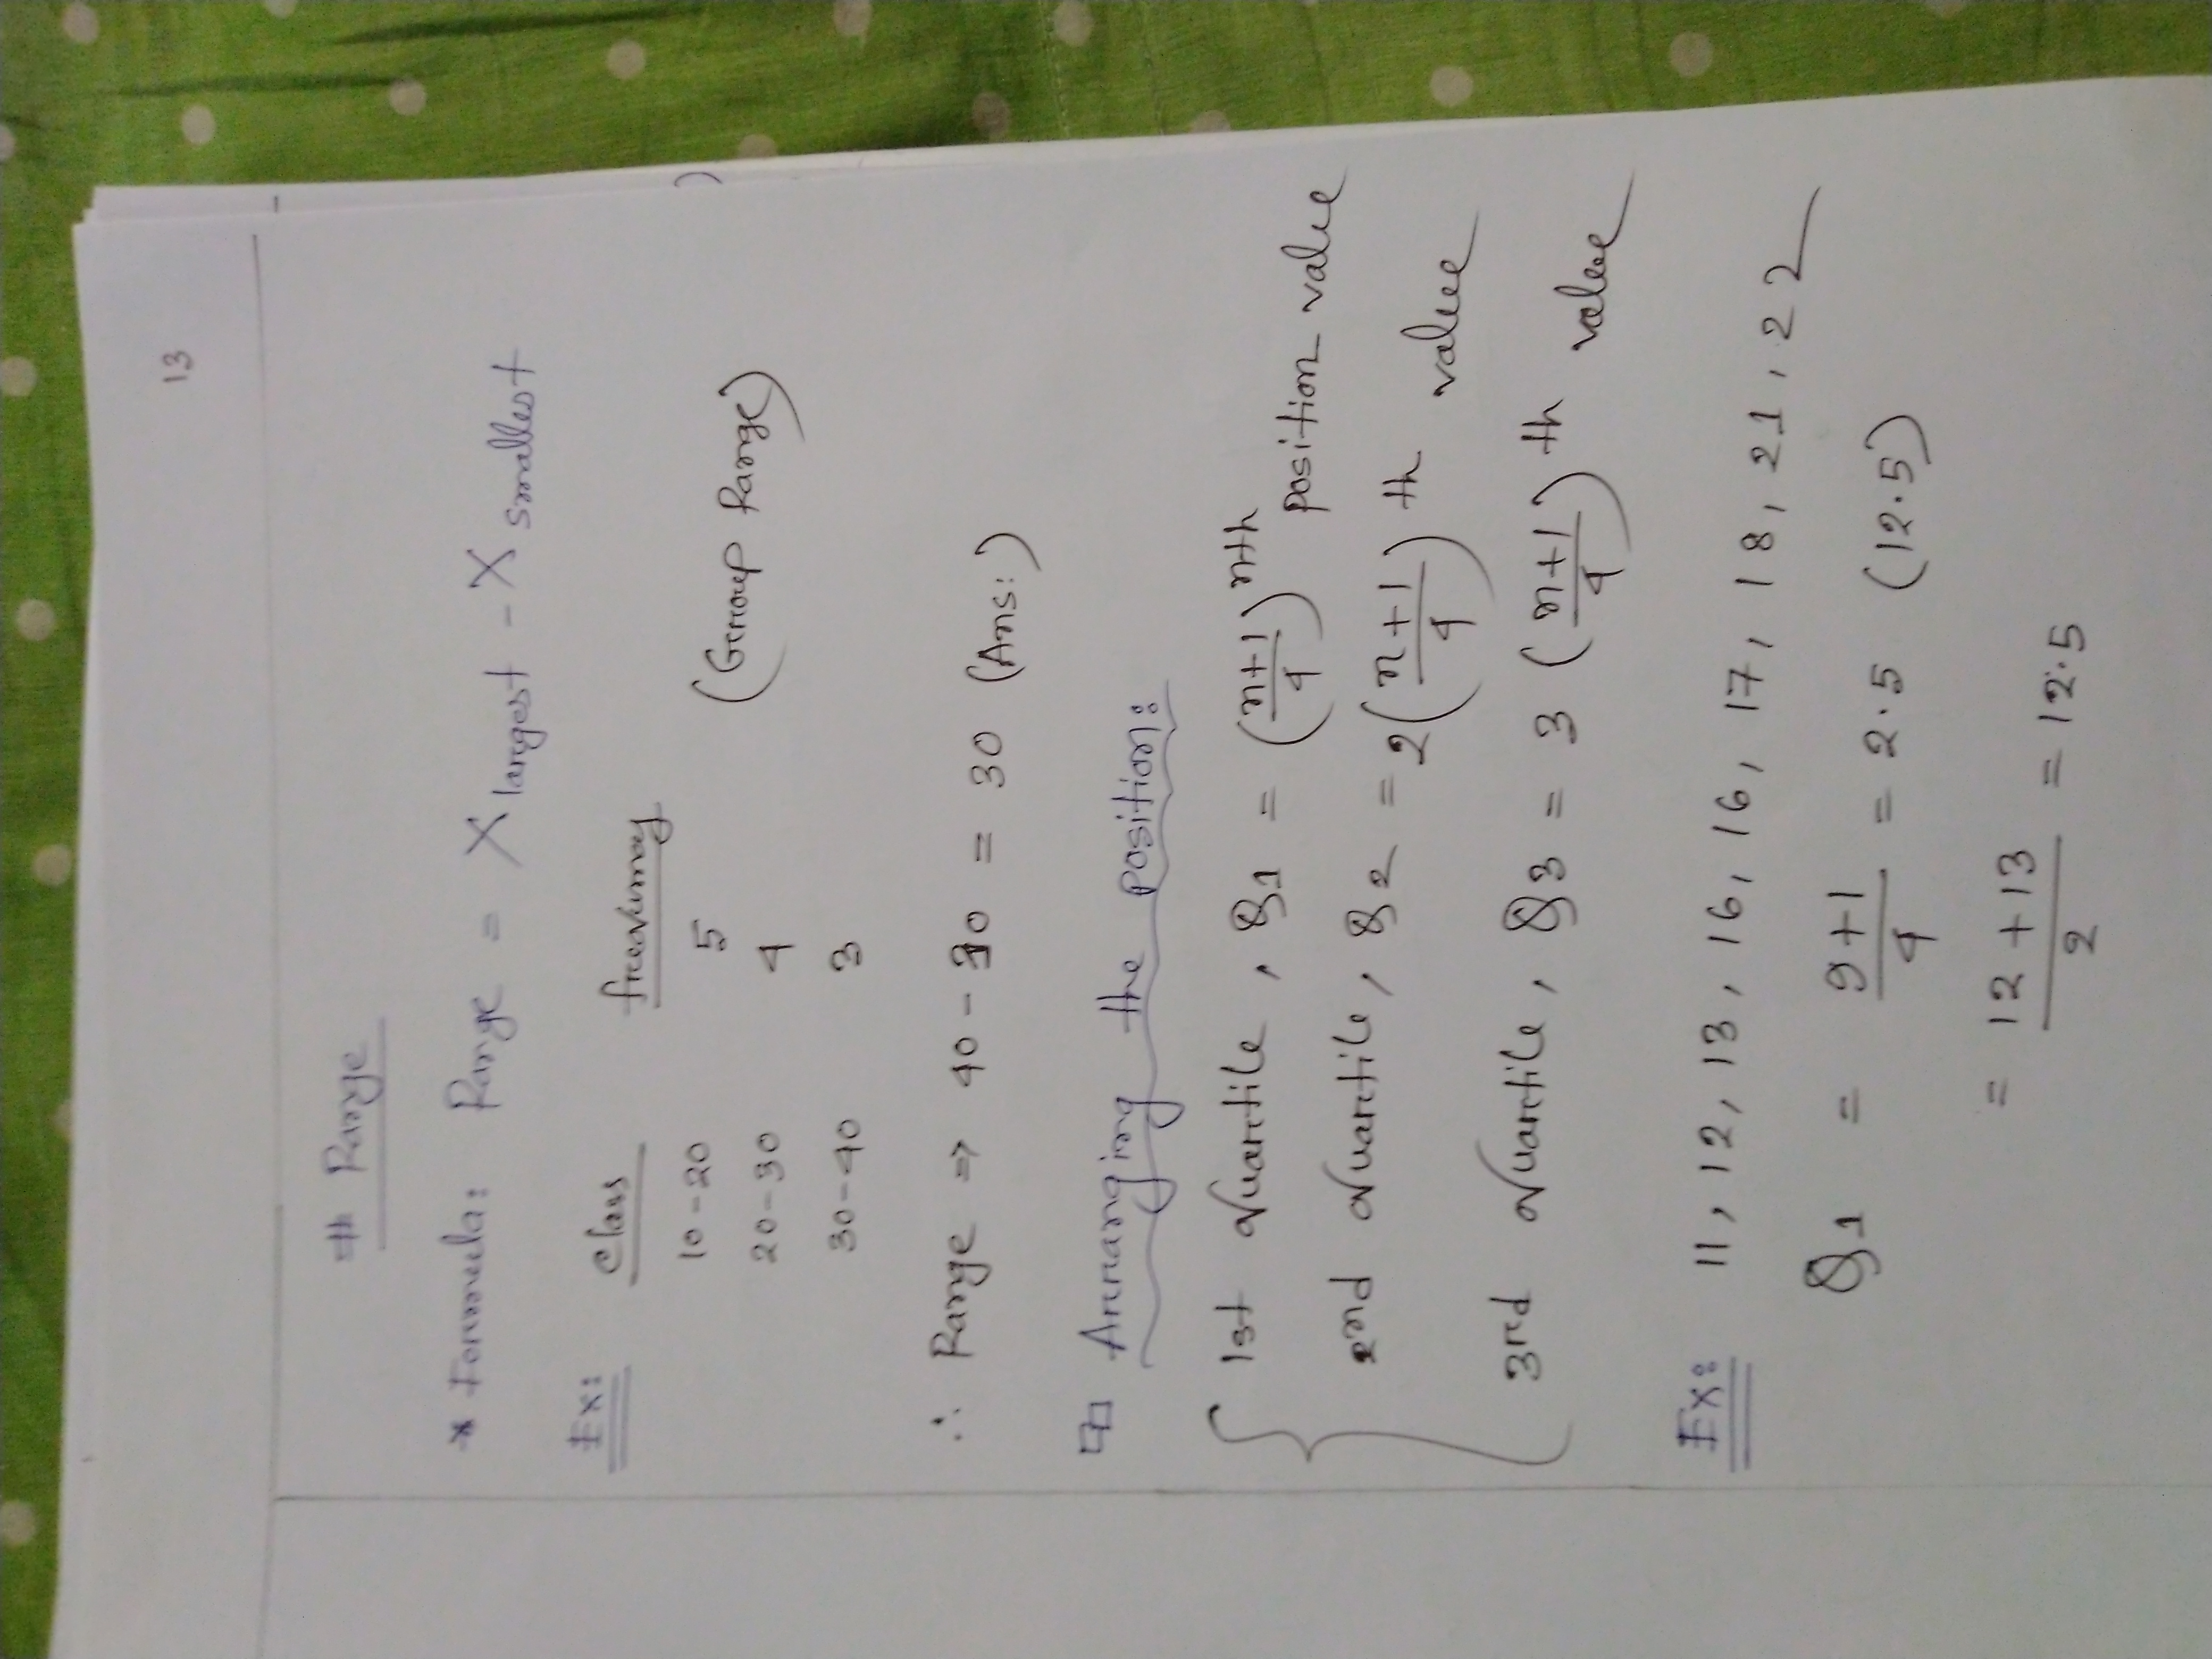 13
# Range
* Formula: Range = X largest - X smallest
Ex: Class frequency
10-20 5
20-30 4 (Group Range)
30-40 3
∴ Range ⇒ 40-10 = 30 (Ans:)
Arranging the position:
1st quartile, Q1 = (n+1/4)nth position value
2nd quartile, Q2 = 2(n+1/4)th value
3rd quartile, Q3 = 3(n+1/4)th value
Ex: 11, 12, 13, 16, 16, 17, 18, 21, 22
Q1 = 9+1/4 = 2.5 (12.5)
= 12+13/2 = 12.5